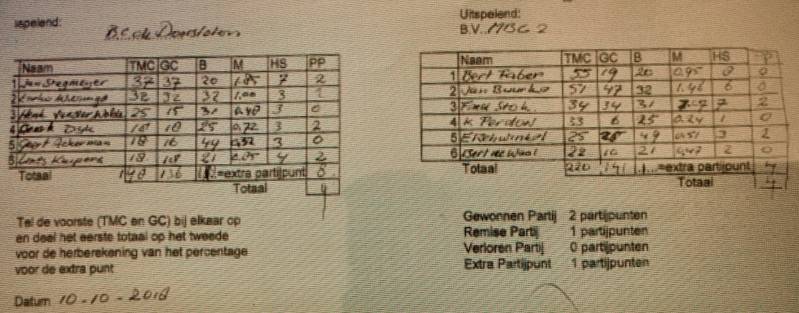 ispelend:
B.C. de
Naam TMC GC B M HS PP
1 Jan Stegmeyer 37 37 20 1,85 7 2
2 32 32 32 1,00 3
3 Henk 25 15 31 0,48 3 0
4 Dyk 18 18 25 0,72 3 2
5 Ackerman 18 16 49 3 0
6 Kuipers 18 18 21 4 2
Totaal 148 136 =extra partijpunt 0
Totaal
Tel de voorste (TMC en GC) bij elkaar op
en deel het eerste totaal op het tweede
voor de herberekening van het percentage
voor de extra punt
Datum 10-10-2018
Uitspelend:
B.V. MBC 2
Naam TMC GC B M HS PP
1 Bert Faber 55 19 20 0,95 8 0
2 Jan Buurke 51 47 32 1,46 6 0
3 34 34 31 7 2
4 K. Perdon 33 6 25 0,24 1 0
5 25 25 49 0,51 3 2
6 Bert de Waal 22 10 21 0,47 2 0
Totaal 220 141 =extra partijpunt 4
Totaal 4
Gewonnen Partij 2 partijpunten
Remise Partij 1 partijpunten
Verloren Partij 0 partijpunten
Extra Partijpunt 1 partijpunten